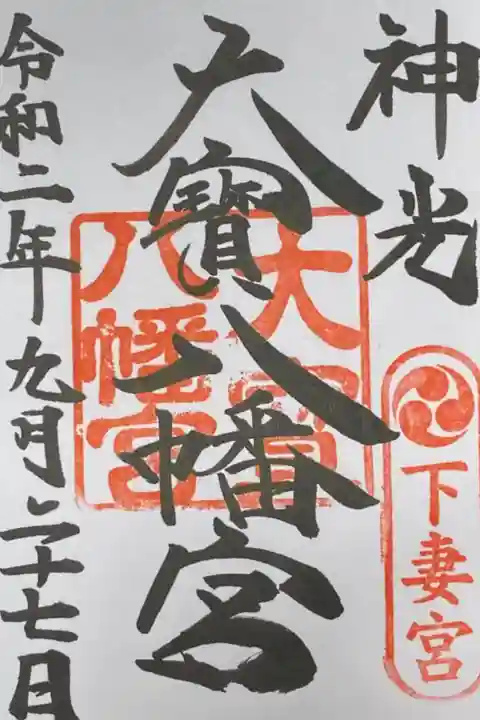 神光
下妻宮
大寶八幡宮
大寳八幡宮
令和二年九月二十七日